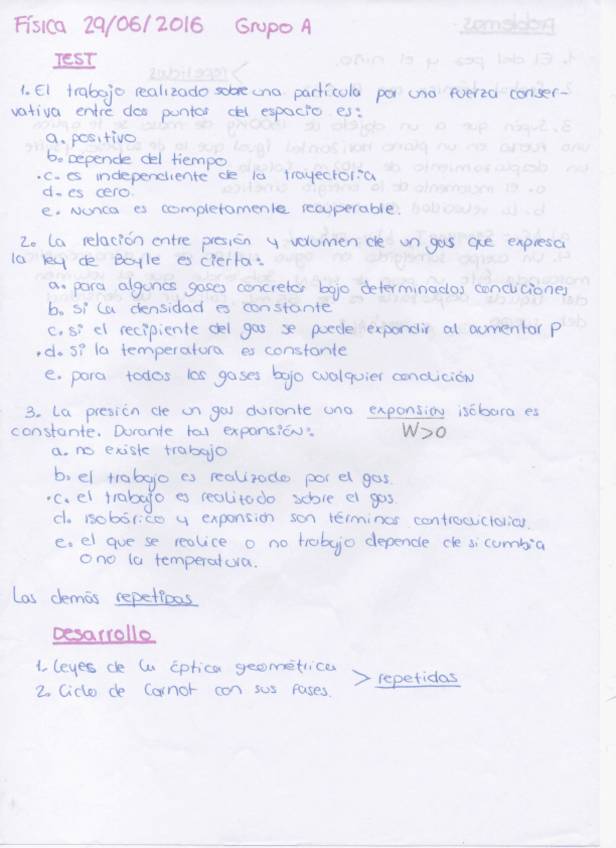 Física 29/06/2016 Grupo A
TEST
1. El trabajo realizado sobre una partícula por una fuerza conser-
vativa entre dos puntos del espacio es:
a. positivo
b. Depende del tiempo
·c. es independiente de la trayectoria
d. es cero.
e. Nunca es completamente recuperable.
2. La relación entre presión y volumen de un gas que expresa
la ley de Boyle es cierta:
a. para algunos gases concretos bajo determinadas condiciones
b. si la densidad es constante
c. si el recipiente del gas se puede expandir al aumentar P
·d. Si la temperatura es constante
e. para todos los gases bajo cualquier condición
3. La presión de un gas durante una expansión isóbara es
constante. Durante tal expansión:
W>0
a. no existe trabajo
b. el trabajo es realizado por el gas.
·c. el trabajo es realizado sobre el gas.
d. isobárico y expansión son términos contradictorios.
e. el que se realice o no trabajo depende de si cambia
o no la temperatura.
Las demás repetidas
Desarrollo
1. Leyes de la óptica geométrica
2. Ciclo de Carnot con sus fases. > repetidas